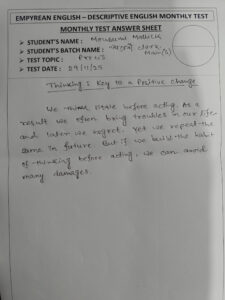 EMPYREAN ENGLISH – DESCRIPTIVE ENGLISH MONTHLY TEST
MONTHLY TEST ANSWER SHEET
➤ STUDENT'S NAME : Mousumi Mallick
➤ STUDENT'S BATCH NAME : Clerk Main (2)
➤ TEST TOPIC : 
➤ TEST DATE : 29/11/25
Thinking : Key to a Positive Change
We think little before acting. As a
result we often bring troubles in our life
and later we regret. Yet we repeat the
same in future. But if we build the habit
of thinking before acting, we can avoid
many damages.